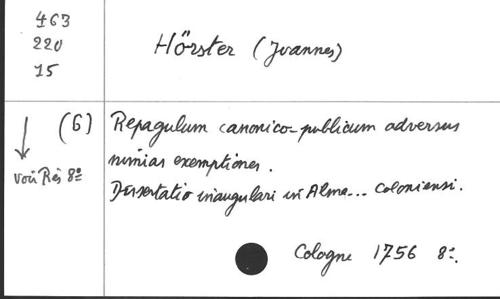 463
220
15
Hörster (Joannes)
(6) Repagulum canonico=publicum adversus
nimias exemptiones.
voir Rés 8º
Dissertatio inaugulari in Alma... coloniensi.
Cologne 1756 8º.